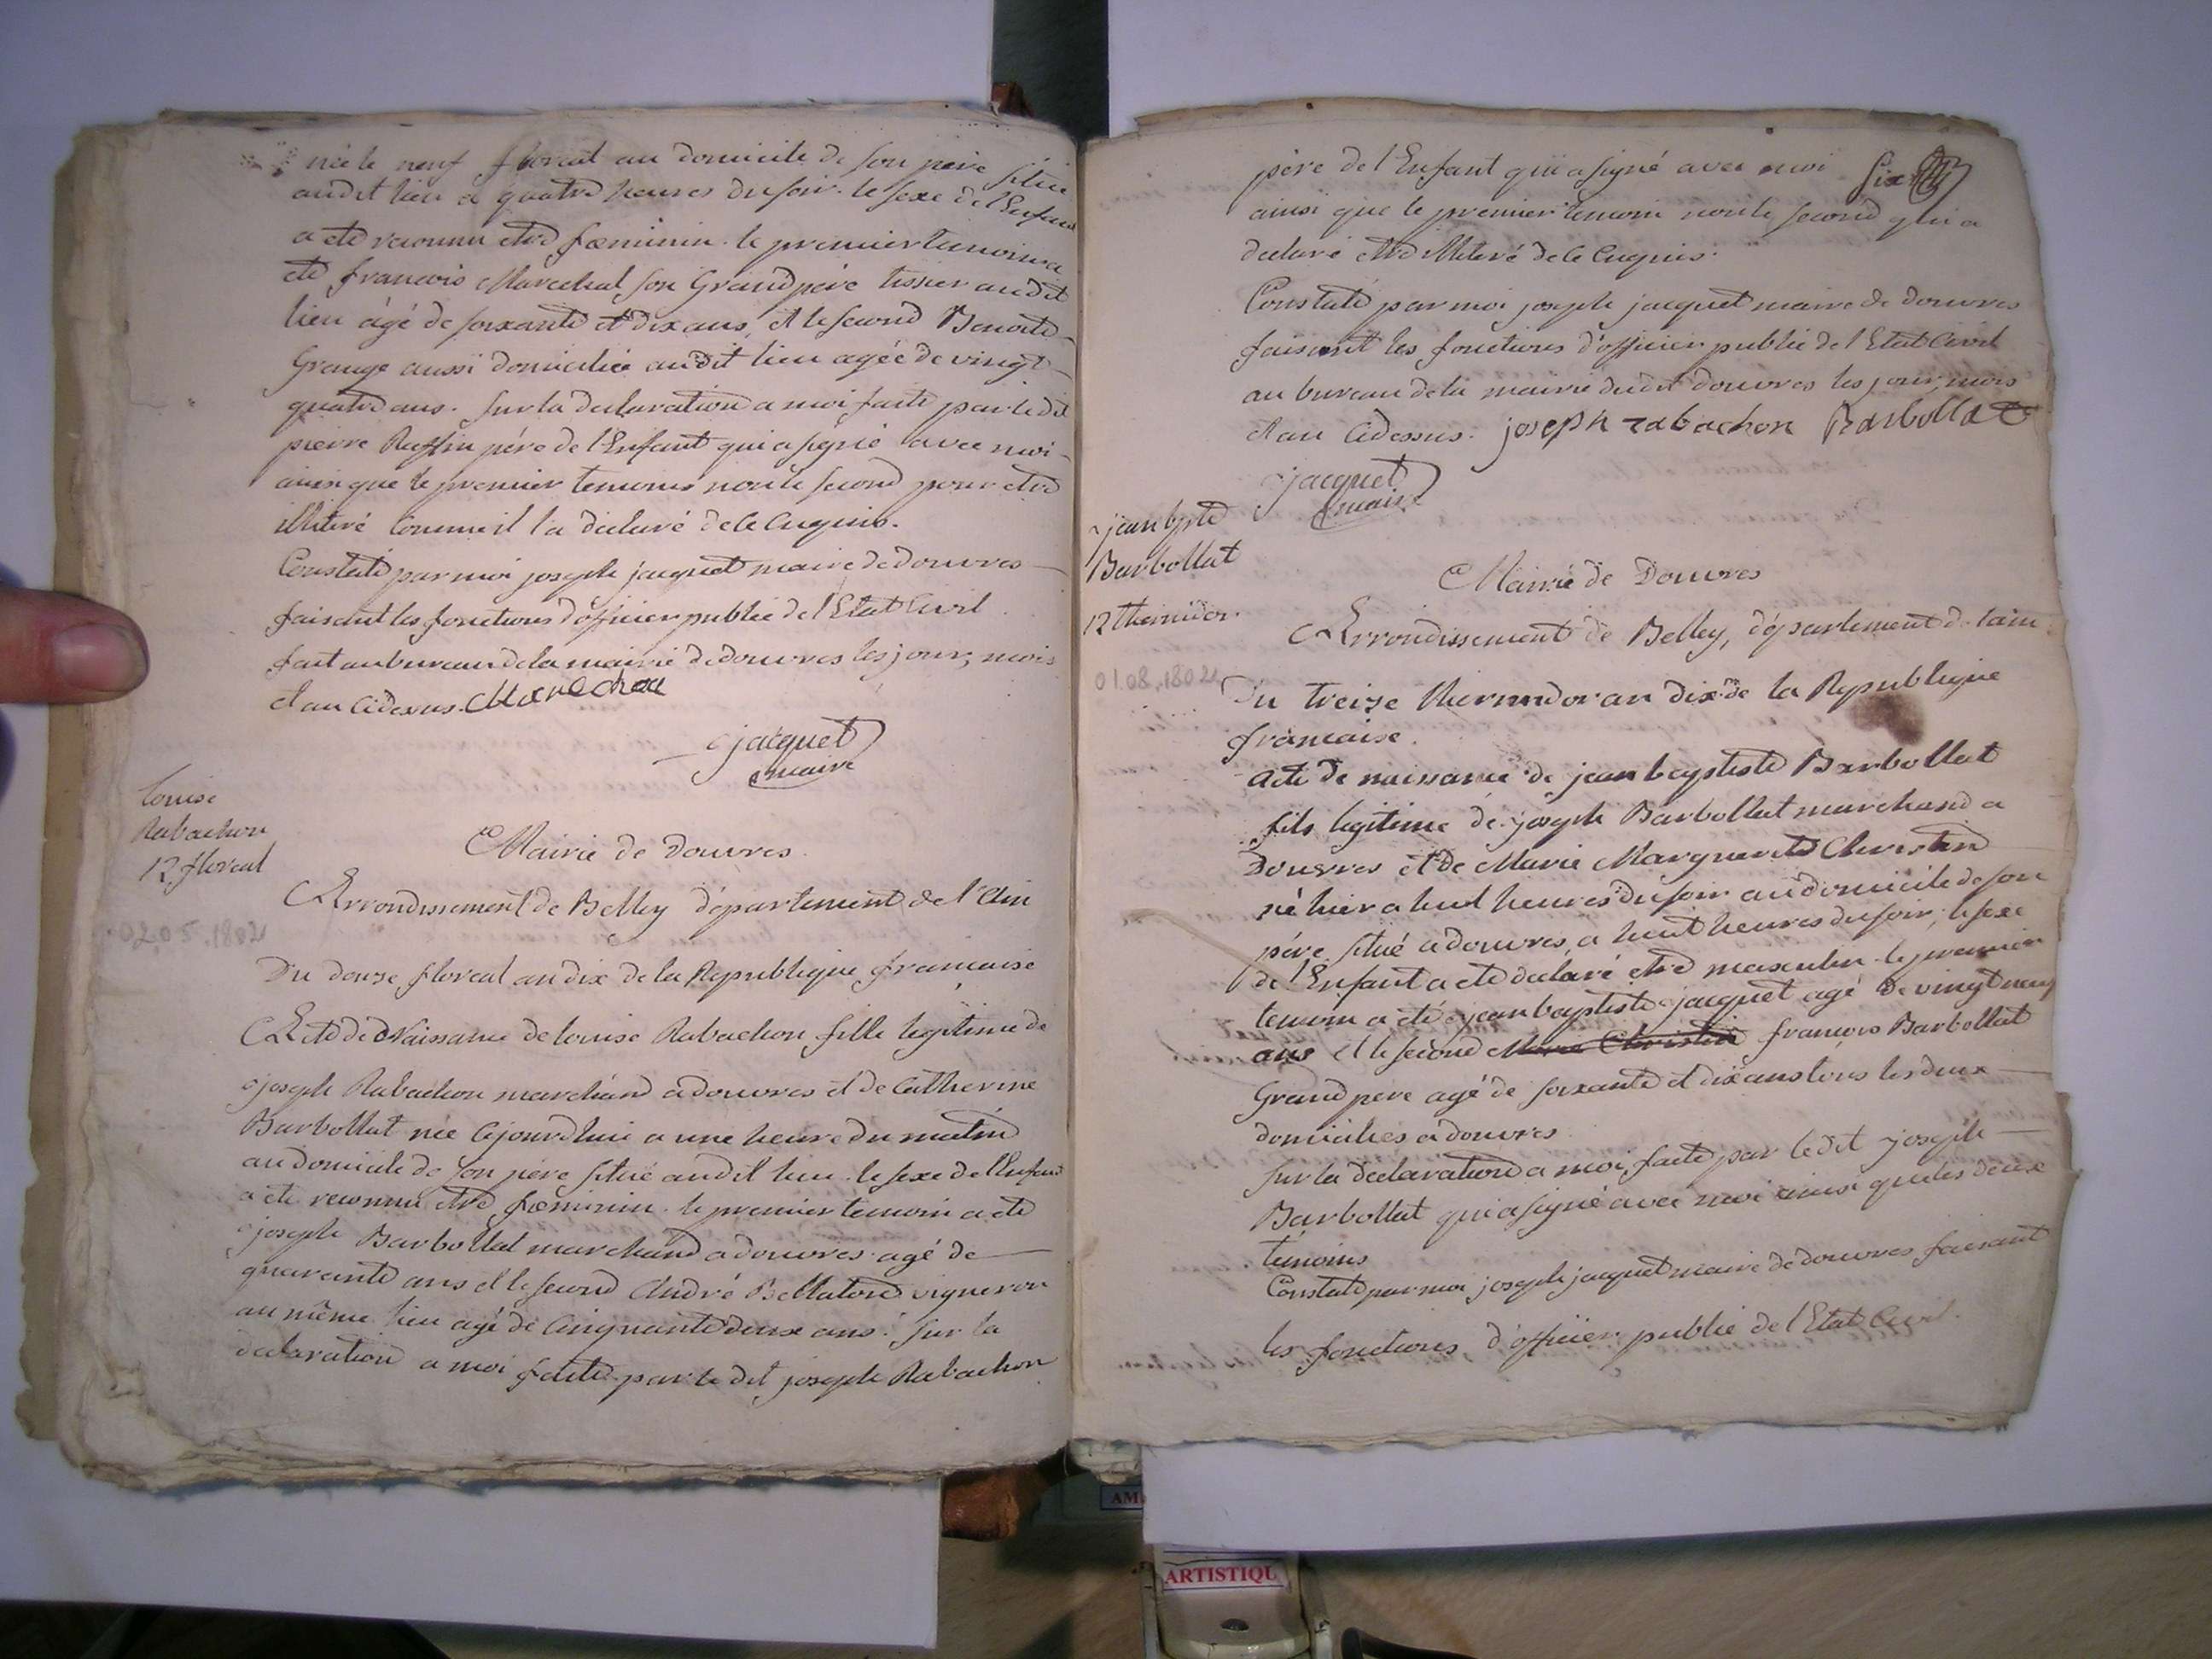 née le neuf floreal au domicile de son pere situé
audit lieu a quatre heures du soir. le sexe de l'Enfant
a eté reconnu etre fœminin. le premier temoin a
eté francois Marechal son Grand pere tissier audit
lieu âgé de soixante et dix ans, et le second Benoite
Grange aussi domiciliée audit lieu agée de vingt
quatre ans. sur la declaration a moi faite par le dit
pierre Ruffin pére de l'Enfant qui a signé avec moi
ainsi que le premier temoins non le second pour etre
illiteré comme il l'a declaré de ce enquis.
Constaté par moi joseph jacquet maire de douvres
faisant les fonctions d'officier public de l'Etat Civil
fait au bureau de la mairie de douvres les jour, mois
et an cidessus. Marechal
jacquet
maire
louise
Rabachon
12 floreal
02.05.1802
Mairie de Douvres.
Arrondissement de Belley département de l'Ain
Du douze floreal an dix de la Republique francaise
Acte de Naissance de louise Rabachon fille legitime de
joseph Rabachon marchand a douvres et de Catherine
Barbollat née cejourdhui a une heure du matin
au domicile de son pere situé audit lieu. le sexe de l'Enfant
a eté reconnu etre fœminin. le premier temoin a eté
joseph Barbollat marchand a douvres agé de
quarante ans et le second André Bellaton vigneron
au même lieu agé de cinquante deux ans. sur la
declaration a moi faite par le dit joseph Rabachon
pére de l'Enfant qui a signé avec moi six
ainsi que le premier temoin non le second qui a
declaré etre illiteré de ce enquis.
Constaté par moi joseph jacquet maire de douvres
faisant les fonctions d'officier public de l'Etat Civil
au bureau de la mairie dudit douvres les jour, mois
et an cidessus. joseph rabachon Barbollat
jacquet
maire
jean bpte
Barbollat
12 thermidor.
01.08.1802
Mairie de Douvres
Arrondissement de Belley, département de lain.
Du treize thermidor an dix de la Republique
francaise.
Acte de naissance de jean baptiste Barbollat
fils legitime de joseph Barbollat marchand a
Douvres et de Marie Marguerite Christin
né hier a huit heures du soir au domicile de son
pére situé a douvres, a huit heures du soir, le sexe
de l'Enfant a eté declaré etre masculin. le premier
temoin a été jean baptiste jacquet agé de vingt neuf
ans et le second Marie Christin francois Barbollat
Grand pere agé de soixante et dix ans tous les deux
domiciliés a douvres.
sur la declaration a moi faite par le dit joseph
Barbollat qui a signé avec moi ainsi que les deux
témoins
Constaté par moi joseph jacquet maire de douvres faisant
les fonctions d'officier public de l'Etat Civil.
ARTISTIQU